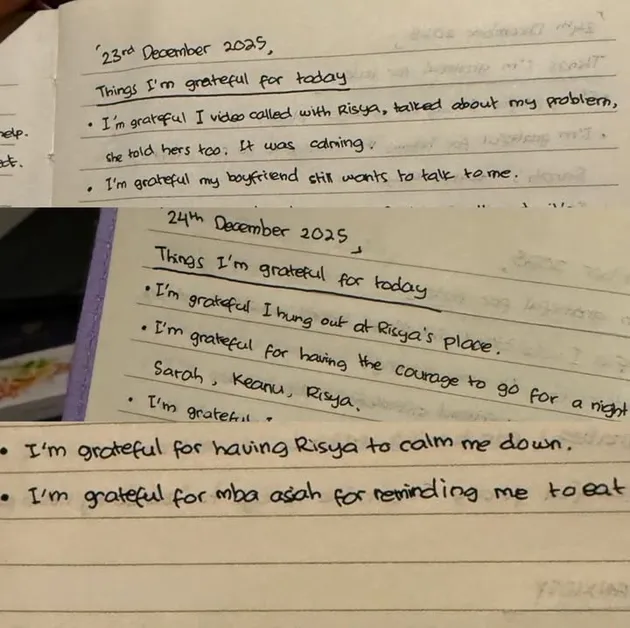 help.
'23rd December 2025,
Things I'm grateful for today
• I'm grateful I video called with Risya, talked about my problem,
she told hers too. It was calming.
• I'm grateful my boyfriend still wants to talk to me.
24th December 2025,
Things I'm grateful for today
• I'm grateful I hung out at Risya's place.
• I'm grateful for having the courage to go for a night
Sarah, Keanu, Risya.
• I'm grateful
• I'm grateful for having Risya to calm me down.
• I'm grateful for mba asiah for reminding me to eat